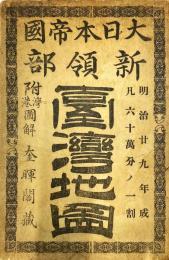 大日本帝國
新領部
明治廿九年成
凡六十萬分ノ一割
臺灣地圖
附
圖解
奎暉閣藏